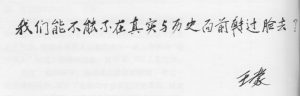 我们能不能不在真实与历史面前转过脸去？
王蒙